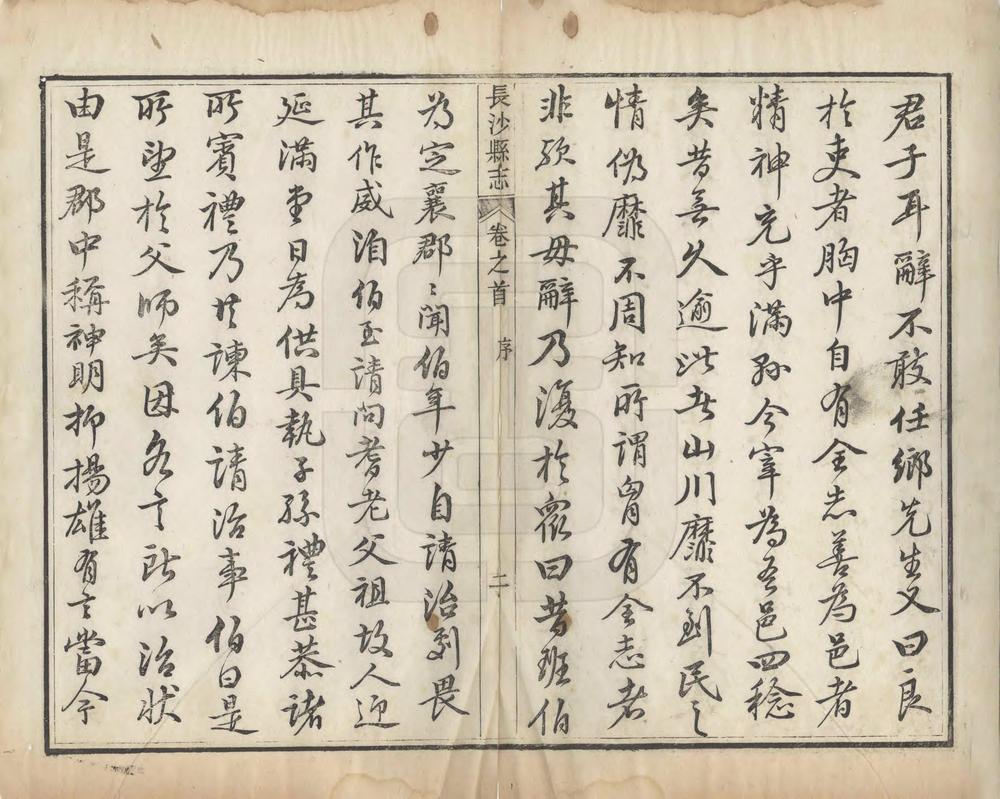 君子耳辭不敢任鄉先生又曰良
於吏者胸中自有全志善為邑者
精神充乎滿縣今宰為吾邑四稔
矣昔無久逾此者山川靡不到民之
情偽靡不周知所謂胷有全志者
非歟其毋辭乃復於眾曰昔班伯
長沙縣志 卷之首 序 二
為定襄郡〻聞伯年少自請治劇畏
其作威洎伯至請問耆老父祖故人迎
延滿堂日為供具執子孫禮甚恭諸
所賓禮乃共諫伯請治事伯曰是
所望於父師矣因各言所以治狀
由是郡中稱神明抑揚雄有言當今